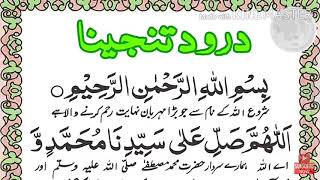 درود تنجینا
Made with KINEMASTER
بِسْمِ اللهِ الرَّحْمٰنِ الرَّحِيْمِ
شروع اللہ کے نام سے جو بڑا مہربان نہایت رحم کرنے والا ہے
اَللّٰهُمَّ صَلِّ عَلٰى سَيِّدِنَا مُحَمَّدٍ وَّ
اے اللہ ہمارے سردار حضرت محمد مصطفےٰ صلی اللہ علیہ وسلم اور